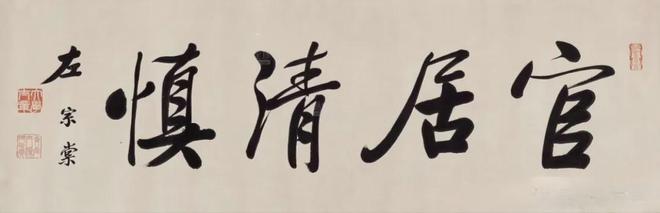 官居清慎
左宗棠